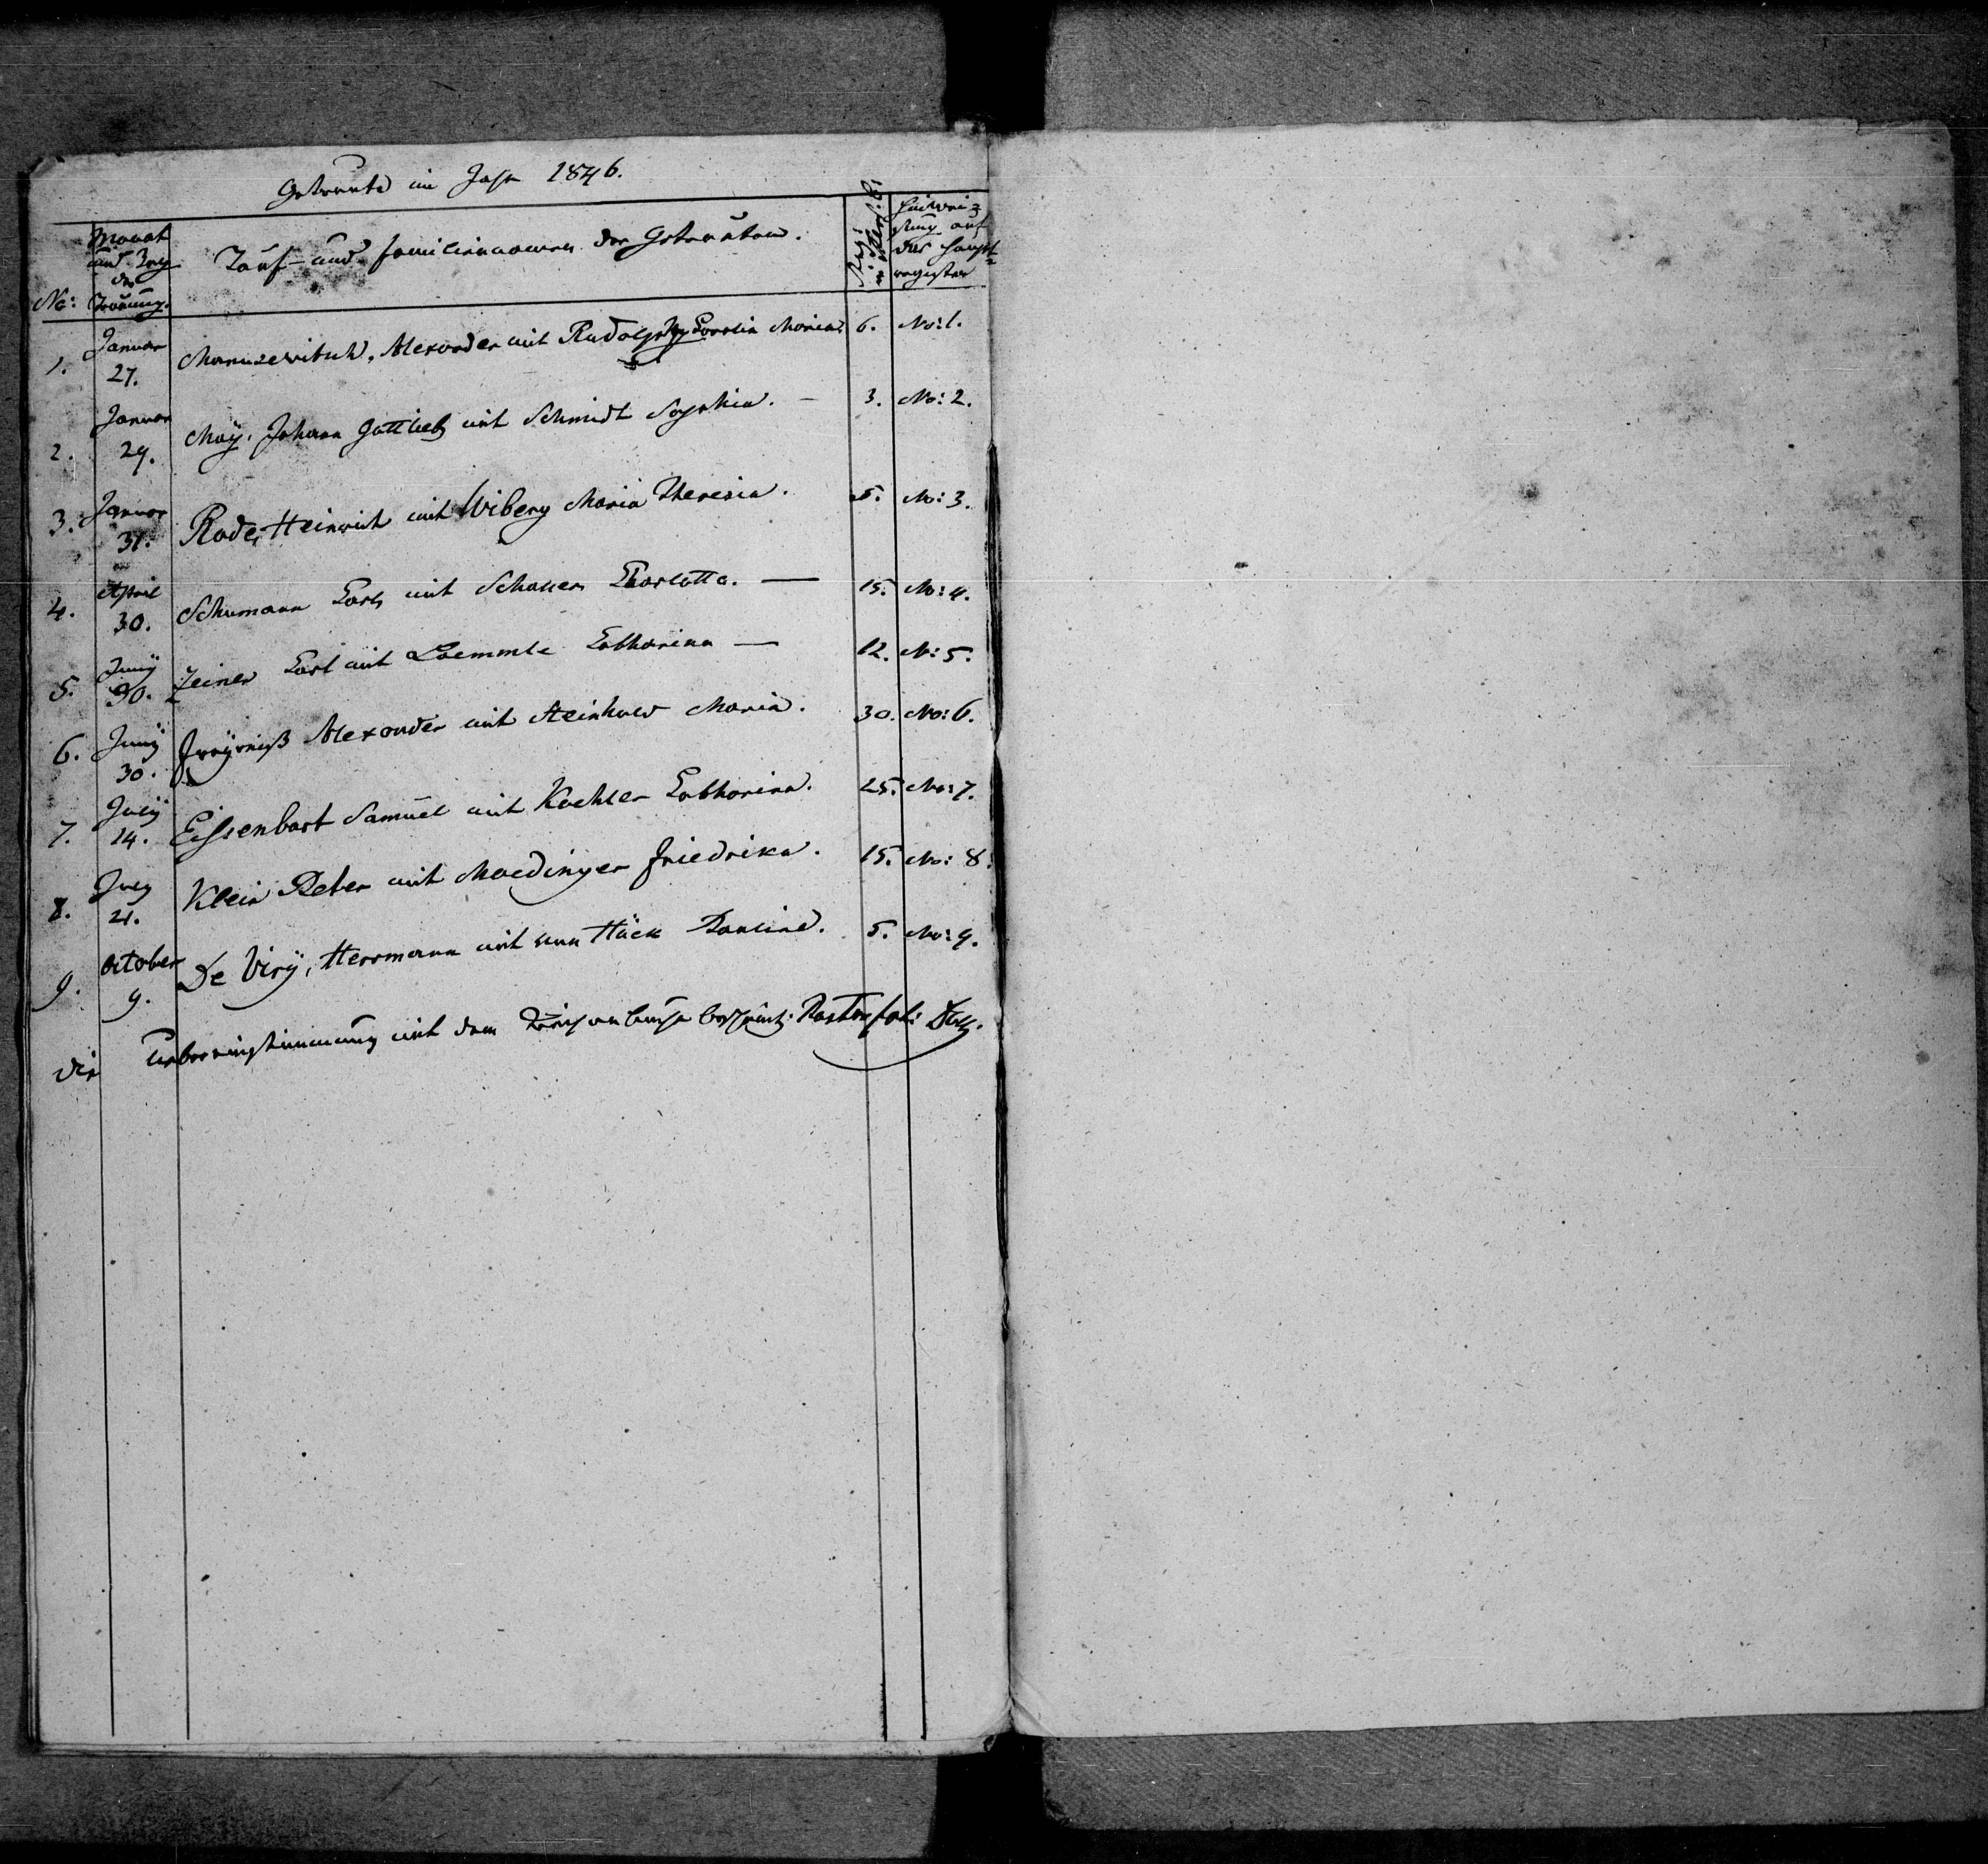 Getraute im Jahr 1846.
No: Monat und Tag der Trauung. Tauf- und Familiennamen der Getrauten. Hinweisung auf das Hauptregister
1. Januar 27. Alexander mit Carolin Maria. 6. No: 1.
2. Januar 29. May, Johann Gottlieb mit Schmidt Sophia. – 3. No: 2.
3. Januar 31. Rode, Heinrich mit Wiberg Maria Theresia. 5. No: 3.
4. April 30. Schumann Carl mit Schauer Charlotta. — 15. No: 4.
5. Juny 30. Zeiner Carl mit Laemmle Catharina — 12. N: 5.
6. Juny 30. Alexander mit Maria. 30. No: 6.
7. July 14. Eissenbart Samuel mit Koehler Catharina. 25. No: 7.
8. July 21. Klein Peter mit Maedinger Friedrika. 15. No: 8.
9. October 9. De Viry, Herrmann mit van Hück Paulina. 5. No: 9.
Die Uebereinstimmung mit dem Kirchenbuche bescheint: Pastor